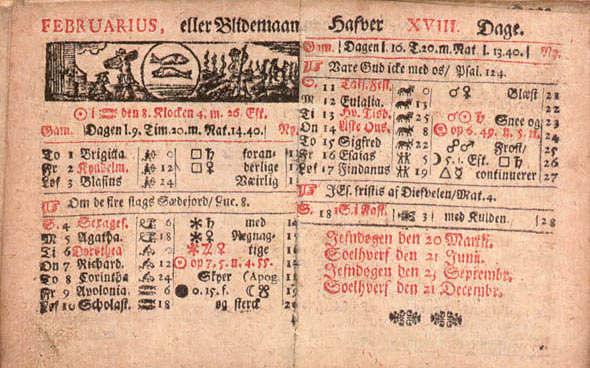 FEBRUARIUS, eller Blidemaan Hafver XVIII. Dage.
☉ i ♒ den 8. Klocken 4. m. 26. Eft.
Gam. | Dagen l. 9. Tim. 20. m. Nat. 14. 40. | Ny.
To 1 Brigitta 0 □ ♄ foran-
Fr 2 Kyndelm. 12 □ ♀ derlige
Løf 3 Blasius 24 Værlig
Om de fire slags Sædejord/ Luc. 8.
S. 4 Sexages. 6 ⚹ ♄ med
M 5 Agatha. 18 ⚹ ♀
Ti 6 Dorothea 0 tige
On 7 Richard. 12 ☉ op 7. 5. n. 4. 55.
To 8 Corintha 24 Skyer (Apog
Fr 9 Apolonia. 6 ● 0. 15. f.
Løf 10 Scholast. 18 og sterck
Gam. | Dagen l. 10. T. 20. m. Nat l. 13. 40. | Ny.
Vare Gud icke med os/ Psal. 124.
S. 11 Fast. 0 ♂ ♀ Blæst 21
M 12 Eulalia. 13 22
Ti 13 Hv. Tisd. 25 Snee og 23
On 14 8 ☉ op 6. 49. n. 5. 11. 24
To 15 Sigfred 22 Frost/ 25
Fr 16 Esaias 5 Eft. □ ♄ 26
Løf 17 Findanus 19 △ ☿ continuerer 27
JEs. fristis af Diefvelen/ Mat. 4.
S. 18 1. S. i Fast. 3 med Kulden. 28
Jefndøgen den 20 Martii.
Soelhverf den 21 Junii.
Jefndøgen den 23 Septembr.
Soelhverf den 21 Decembr.